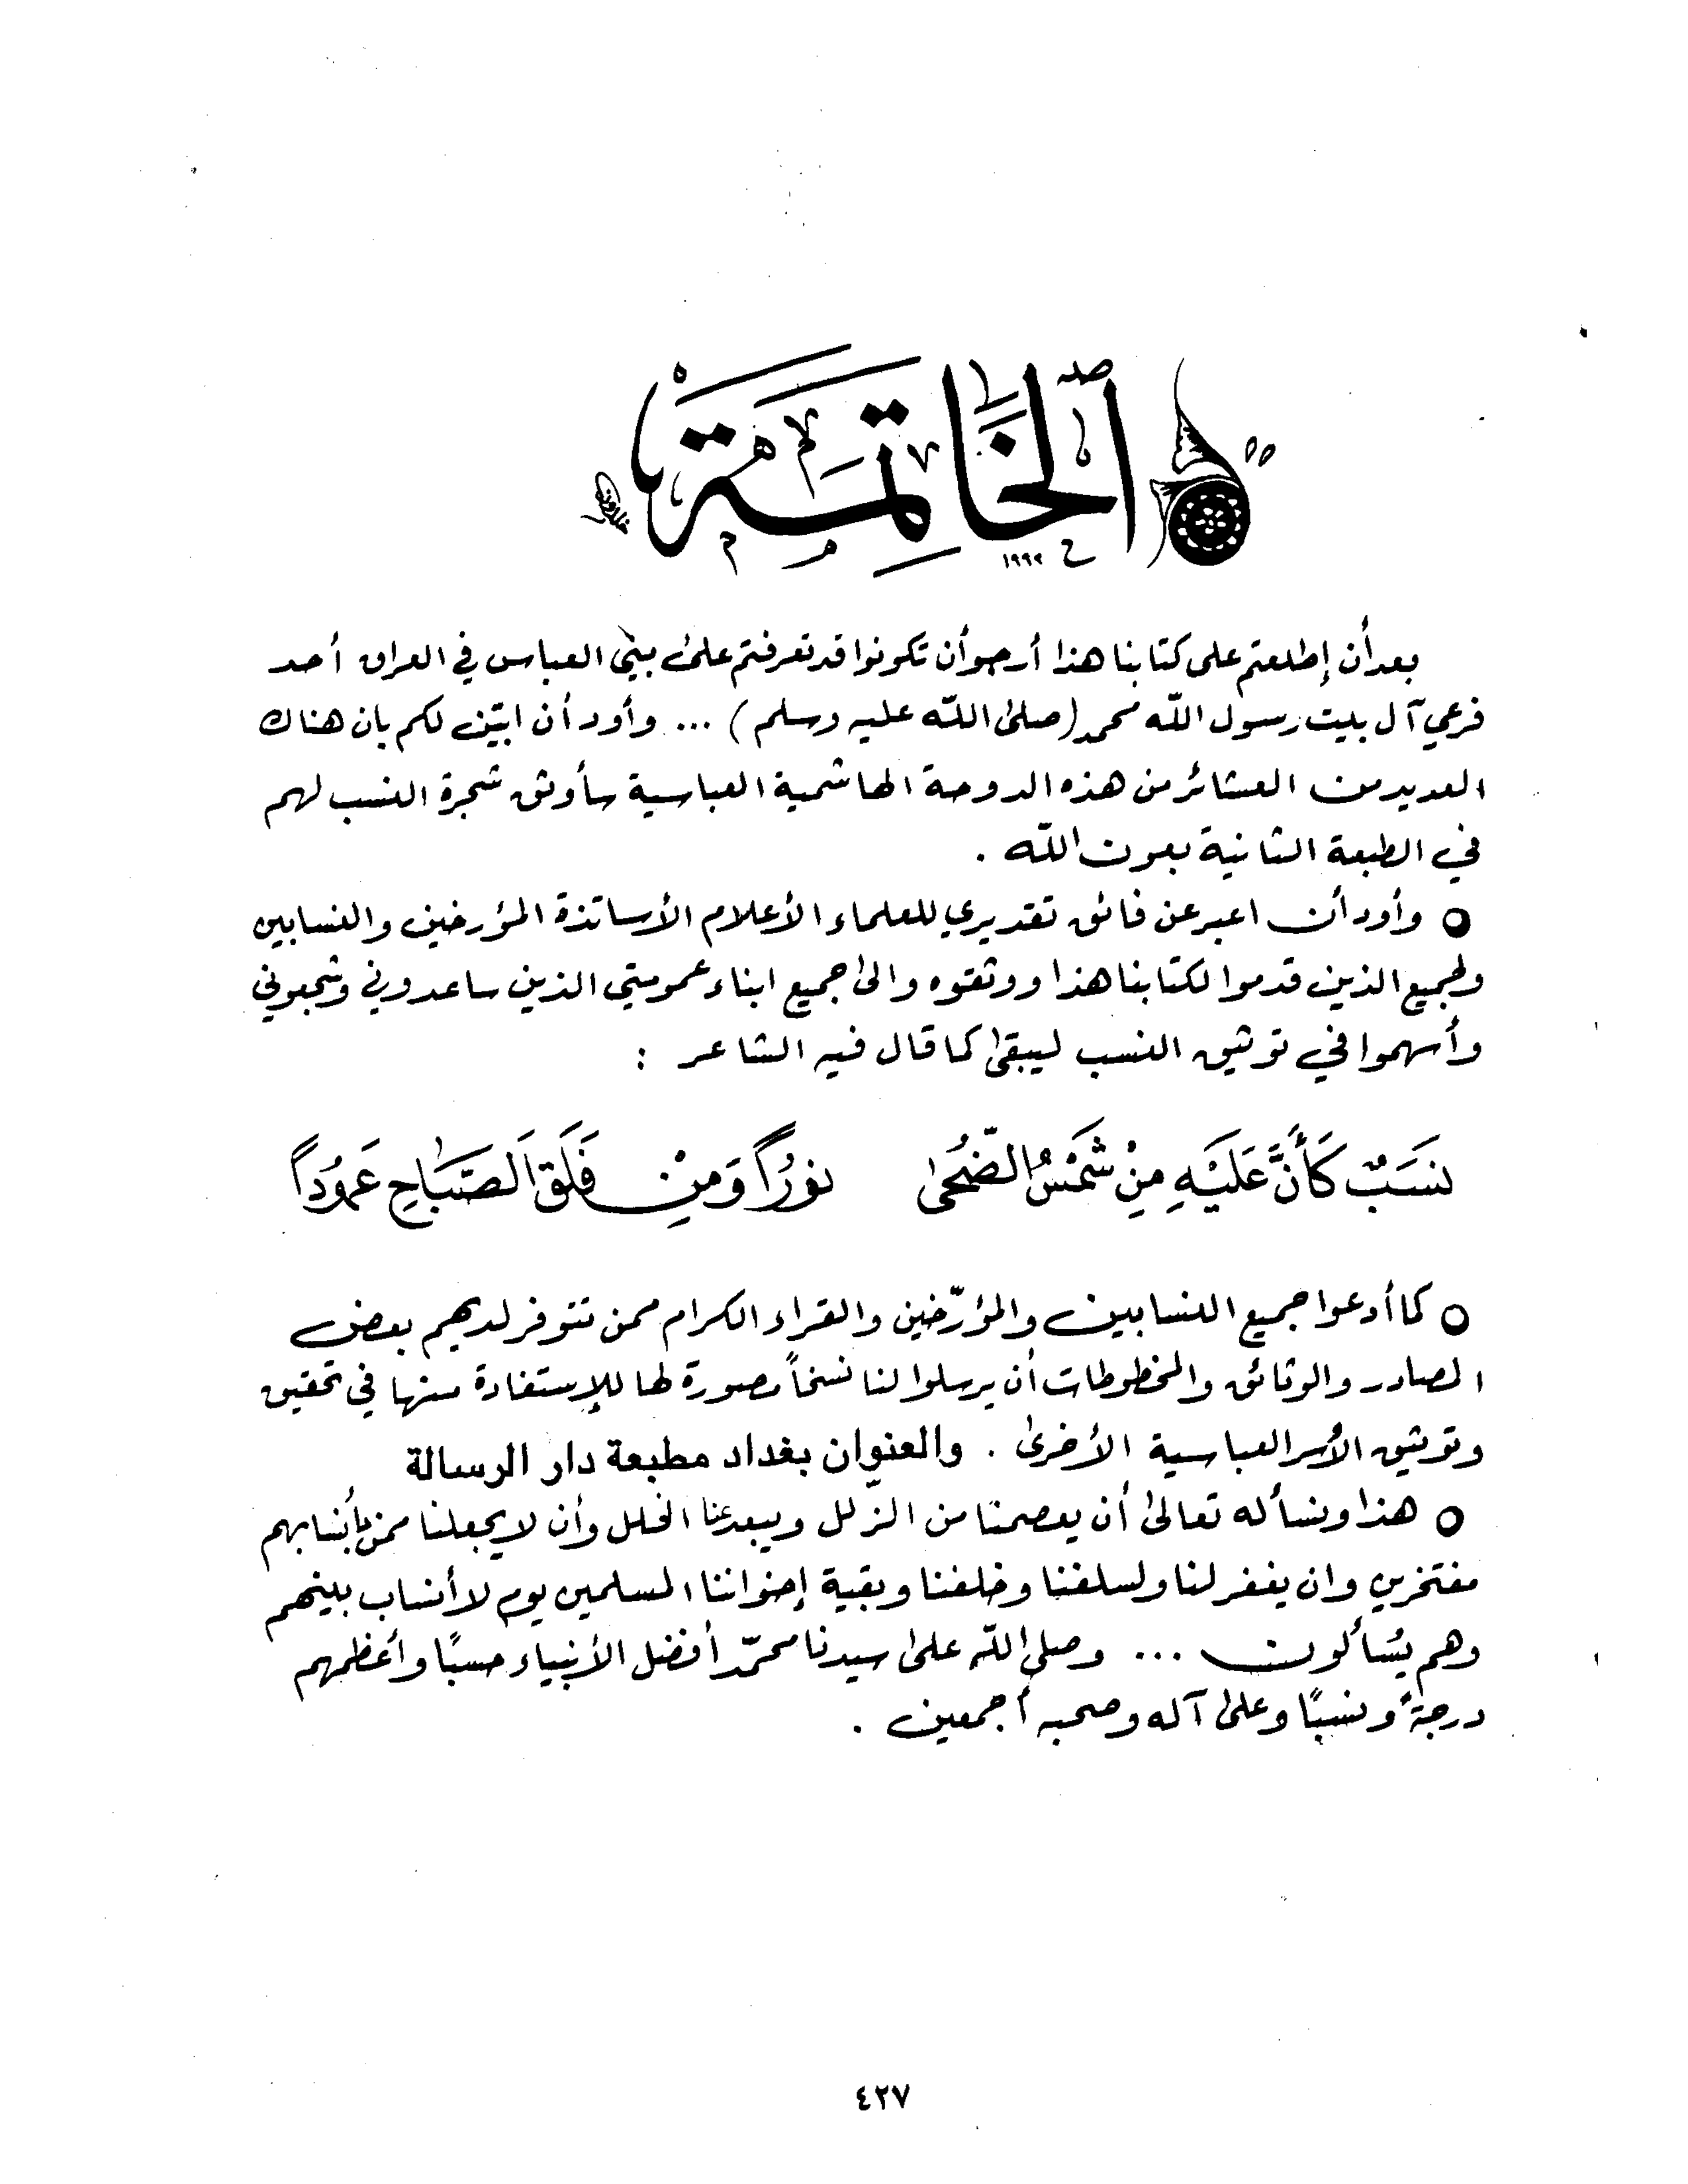 الخَاتِمَة
١٩٩٢
بعد أن إطلعتم على كتابنا هذا أرجو أن تكونوا قد تعرفتم على بني العباس في العراق أحد
فرعي آل بيت رسول اللّه محمد (صلى اللّه عليه وسلم) ... وأود أن ابيّن لكم بان هناك
العديد من العشائر من هذه الدوحة الهاشمية العباسية سأوثق شجرة النسب لهم
في الطبعة الثانية بعون اللّه .
○ وأود أن اعبر عن فائق تقديري للعلماء الأعلام الأساتذة المؤرخين والنسابين
ولجميع الذين قدموا لكتابنا هذا ووثقوه والى جميع ابناء عمومتي الذين ساعدوني وشجعوني
وأسهموا في توثيق النسب ليبقى كما قال فيه الشاعر :
نَسَبٌ كَأَنَّ عَلَيْهِ مِنْ شَمْسُ الضّحَى نُورًا وَمِنْ فَلَقِ الصَّبَاحِ عَمُودَاً
○ كما أدعوا جميع النسابين والمؤرّخين والقراء الكرام ممن تتوفر لديهم بعض
المصادر والوثائق والمخطوطات أن يرسلوا لنا نسخاً مصورة لها للإستفادة منها في تحقيق
وتوثيق الأسر العباسية الأخرى . والعنوان بغداد مطبعة دار الرسالة
○ هذا ونسأله تعالى أن يعصمنا من الزّلل ويبعد عنا الخلل وأن لا يجعلنا ممن بأنسابهم
مفتخرين وان يغفر لنا ولسلفنا وخلفنا وبقية إخواننا المسلمين يوم لا أنساب بينهم
وهم يُسألون ... وصلى اللّه على سيدنا محمّد أفضل الأنبياء حسبًا وأعظمهم
درجةً ونسبًا وعلى آله وصحبه أجمعين .
٤٢٧